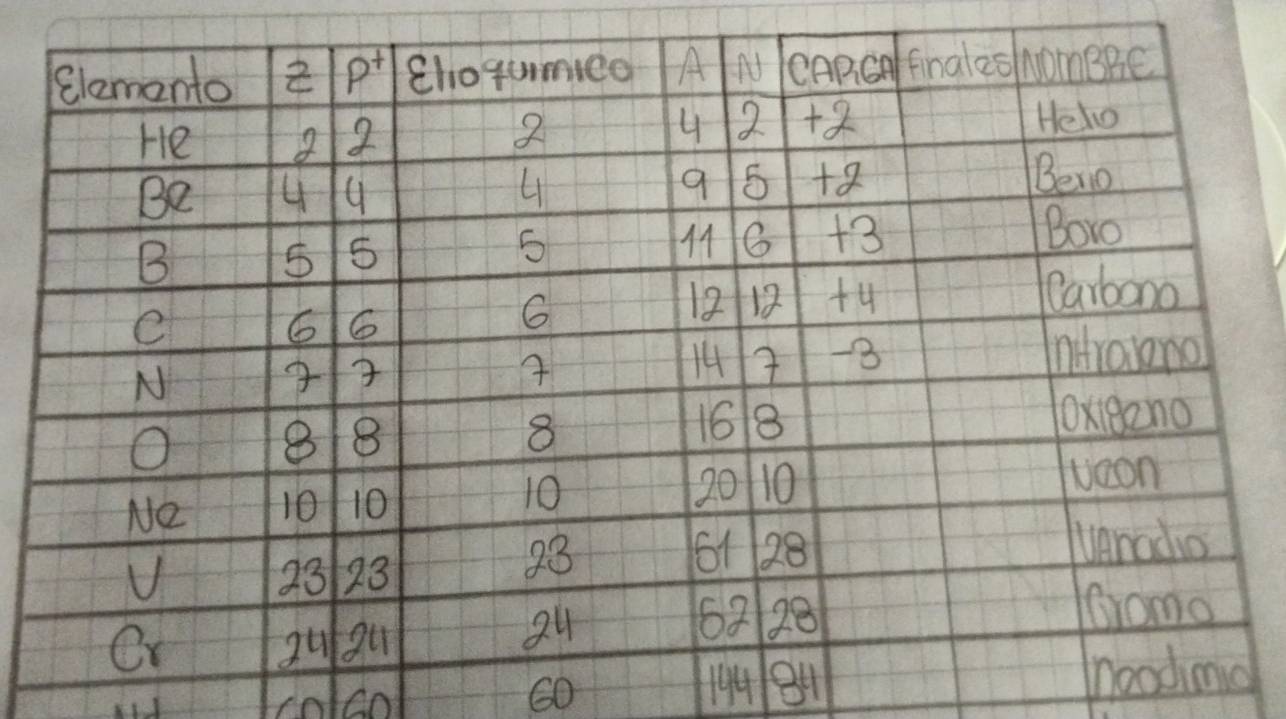 Elemento Z P+ E no quimico A N CARGA finales NOMBRE
He 2 2 2 4 2 +2 Helio
Be 4 4 4 9 5 +2 Berio
B 5 5 5 11 6 +3 Boro
C 6 6 6 12 12 +4 Carbono
N 7 7 7 14 7 -3 nitrogeno
O 8 8 8 16 8 Oxigeno
Ne 10 10 10 20 10 Neon
V 23 23 23 51 28 VAnadio
Cr 24 24 24 52 28 Cromo
Nd 60 60 60 144 84 neodimio